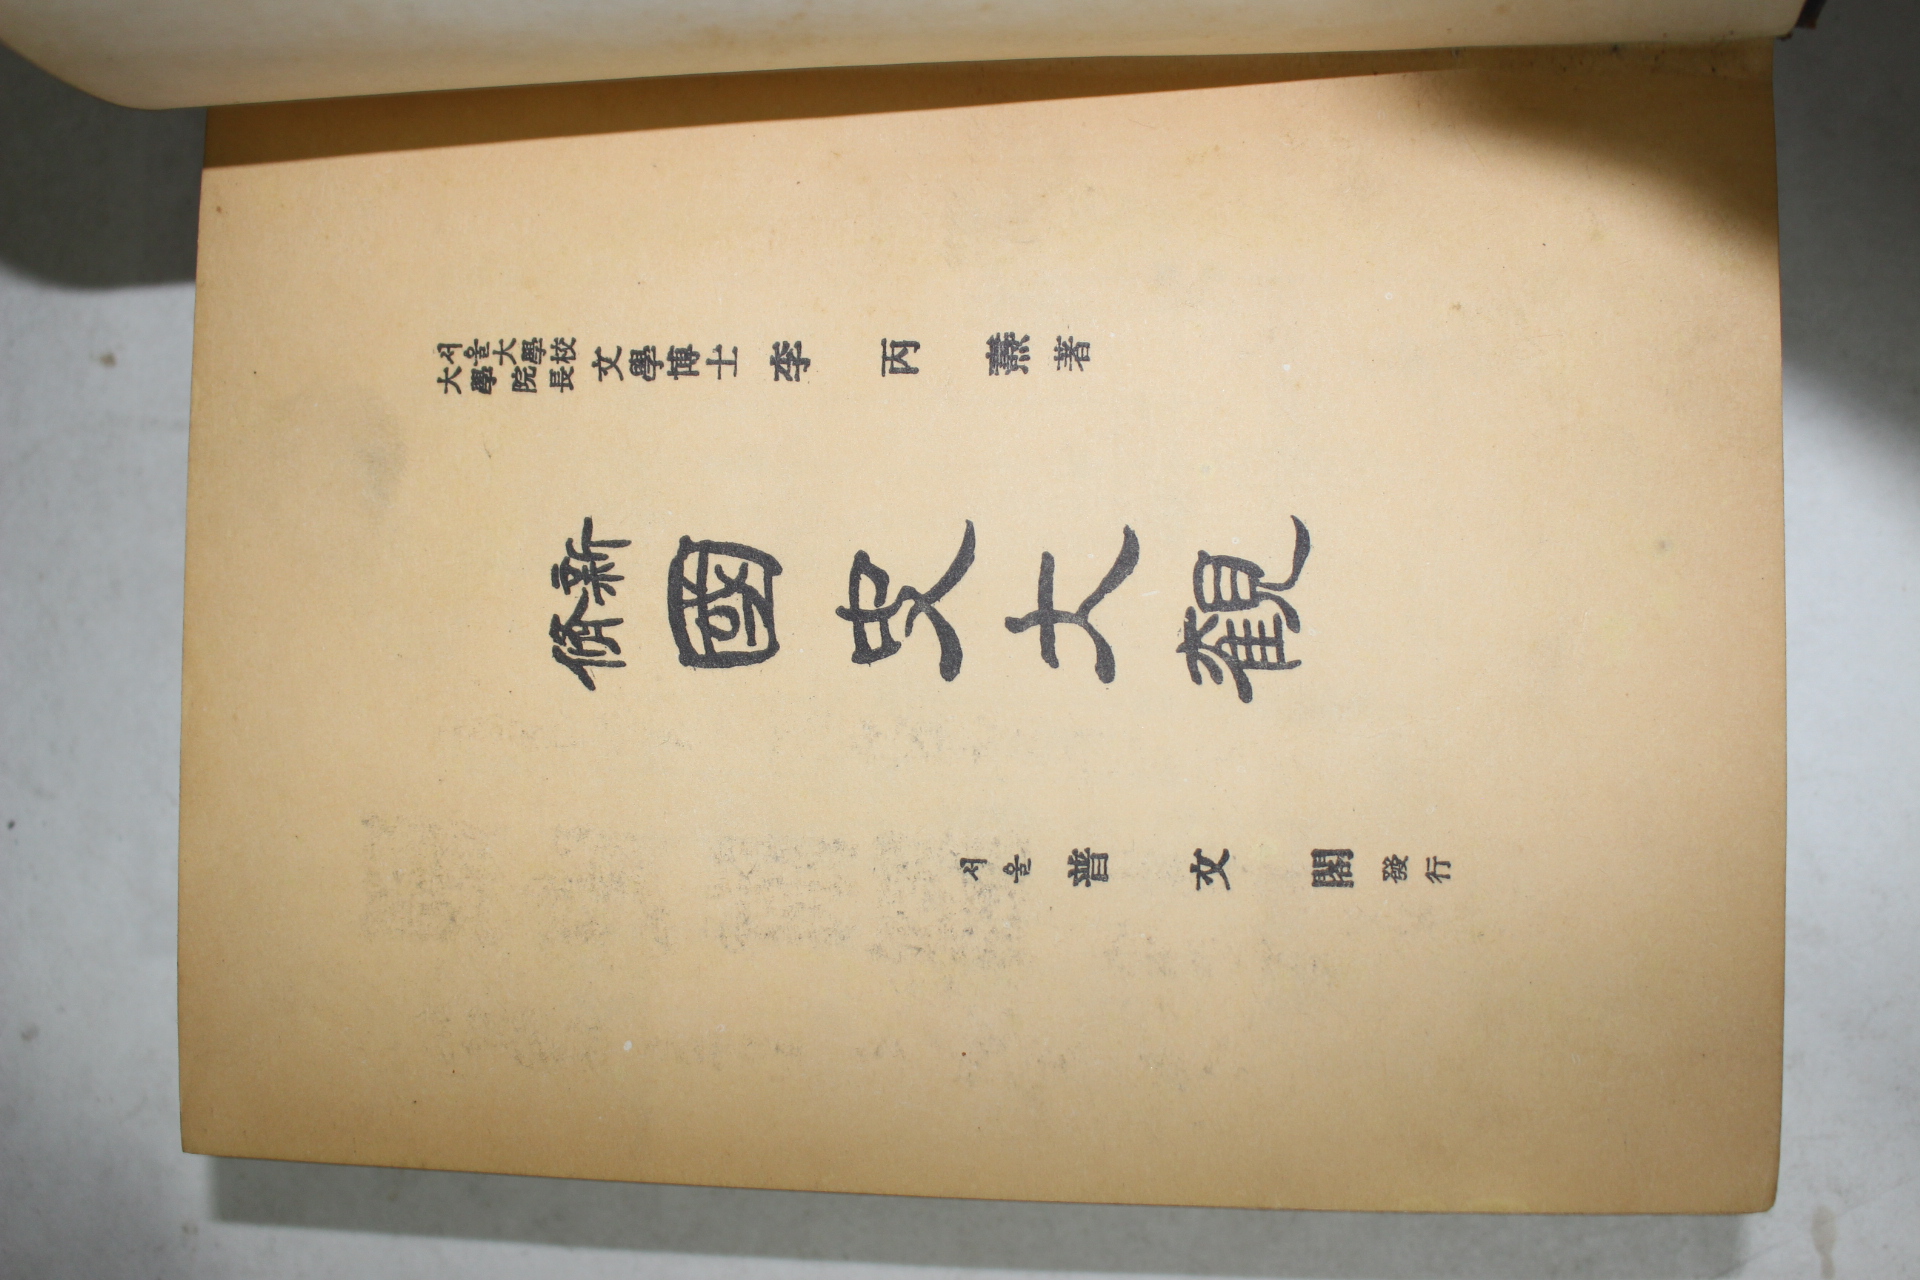 서울大學校
大學院長
文學博士 李丙燾 著
新修 國史大觀
서울 普文閣 發行